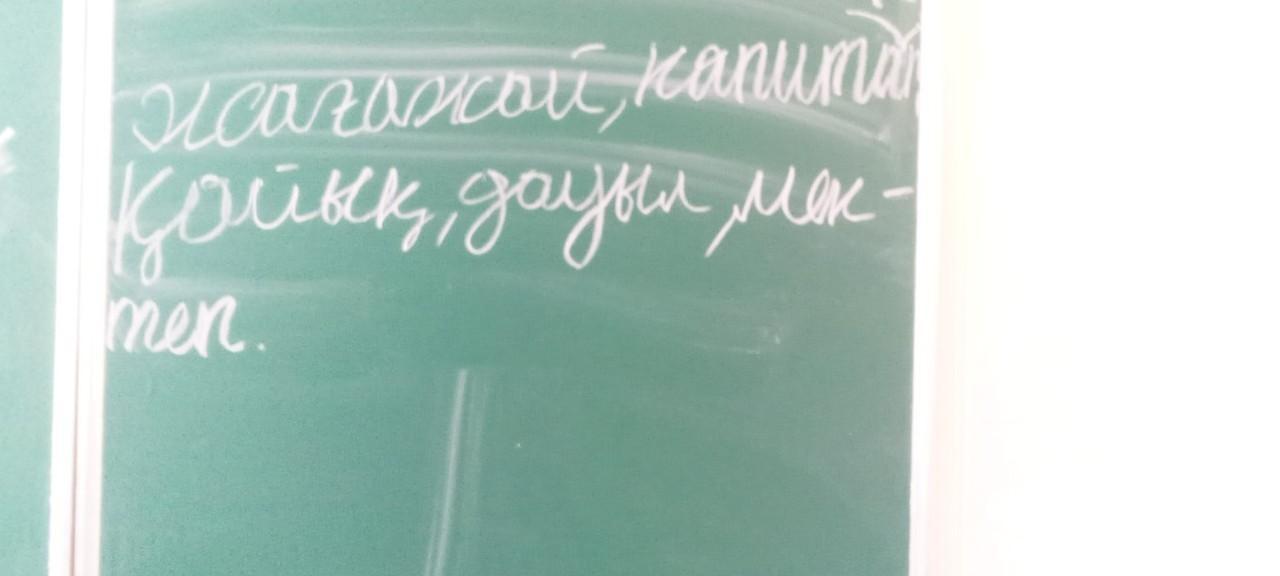 жағажай, капитан,
қайық, дауыл, мек-
теп.